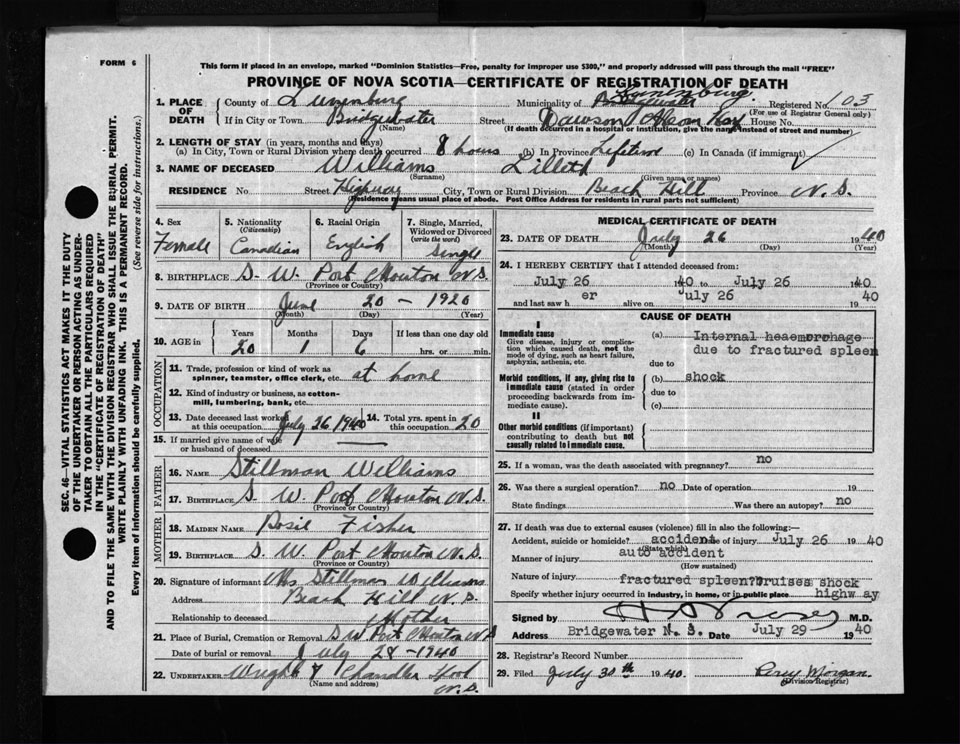 FORM 6
This form if placed in an envelope, marked "Dominion Statistics—Free, penalty for improper use $300," and properly addressed will pass through the mail "FREE"
PROVINCE OF NOVA SCOTIA—CERTIFICATE OF REGISTRATION OF DEATH
1. PLACE OF DEATH County of Lunenburg Municipality of Bridgewater Lunenburg Registered No. 103
(For use of Registrar General only)
If in City or Town Bridgewater Street Dawson House No.
(Name) (If death occurred in a hospital or institution, give the name instead of street and number)
2. LENGTH OF STAY (in years, months and days)
(a) In City, Town or Rural Division where death occurred 8 hours (b) In Province Lifetime (c) In Canada (if immigrant)
3. NAME OF DECEASED Williams Lilleth
(Surname) (Given name or names)
RESIDENCE No. Street Highway City, Town or Rural Division Beach Hill Province N.S.
(Residence means usual place of abode. Post Office Address for residents in rural parts not sufficient)
4. Sex Female
5. Nationality (Citizenship) Canadian
6. Racial Origin English
7. Single, Married, Widowed or Divorced (write the word) Single
8. BIRTHPLACE S. W. Port Mouton N.S.
(Province or Country)
9. DATE OF BIRTH June 20 - 1920
(Month) (Day) (Year)
10. AGE in Years 20 Months 1 Days 6 If less than one day old hrs. or min.
OCCUPATION
11. Trade, profession or kind of work as spinner, teamster, office clerk, etc. at home
12. Kind of industry or business, as cotton-mill, lumbering, bank, etc.
13. Date deceased last worked at this occupation July 26 1940
14. Total yrs. spent in this occupation 20
15. If married give name of wife or husband of deceased —
FATHER
16. NAME Stillman Williams
17. BIRTHPLACE S. W. Port Mouton N.S.
(Province or Country)
MOTHER
18. MAIDEN NAME Rosie Fisher
19. BIRTHPLACE S. W. Port Mouton N.S.
(Province or Country)
20. Signature of informant Mrs Stillman Williams
Address Beach Hill N.S.
Relationship to deceased Mother
21. Place of Burial, Cremation or Removal S W Port Mouton N S
Date of burial or removal July 28-1940
22. UNDERTAKER Wright & Chandler
(Name and address) N.S.
MEDICAL CERTIFICATE OF DEATH
23. DATE OF DEATH July 26 1940
(Month) (Day) (Year)
24. I HEREBY CERTIFY that I attended deceased from:
July 26 1940 to July 26 1940
and last saw h er alive on July 26 1940
CAUSE OF DEATH
I
Immediate cause
Give disease, injury or complication which caused death, not the mode of dying, such as heart failure, asphyxia, asthenia, etc.
(a) Internal heaemorphage
due to fractured spleen
due to
Morbid conditions, if any, giving rise to immediate cause (stated in order proceeding backwards from immediate cause).
(b) shock
due to
(c)
II
Other morbid conditions (if important) contributing to death but not causally related to immediate cause.
25. If a woman, was the death associated with pregnancy? no
26. Was there a surgical operation? no Date of operation 19
State findings Was there an autopsy? no
27. If death was due to external causes (violence) fill in also the following:—
Accident, suicide or homicide? accident Date of injury July 26 1940
(State which)
Manner of injury auto accident
(How sustained)
Nature of injury fractured spleen?Bruises shock
Specify whether injury occurred in industry, in home, or in public place highw ay
Signed by M.D.
Address Bridgewater N. S. Date July 29 1940
28. Registrar's Record Number
29. Filed July 30th 1940. Percy Morgan
(Division Registrar)
SEC. 46—VITAL STATISTICS ACT MAKES IT THE DUTY
OF THE UNDERTAKER OR PERSON ACTING AS UNDER-
TAKER TO OBTAIN ALL THE PARTICULARS REQUIRED
IN THE "CERTIFICATE OF REGISTRATION OF DEATH"
AND TO FILE THE SAME WITH THE DIVISION REGISTRAR WHO SHALL ISSUE THE BURIAL PERMIT.
WRITE PLAINLY WITH UNFADING INK. THIS IS A PERMANENT RECORD.
Every item of information should be carefully supplied. (See reverse side for instructions.)